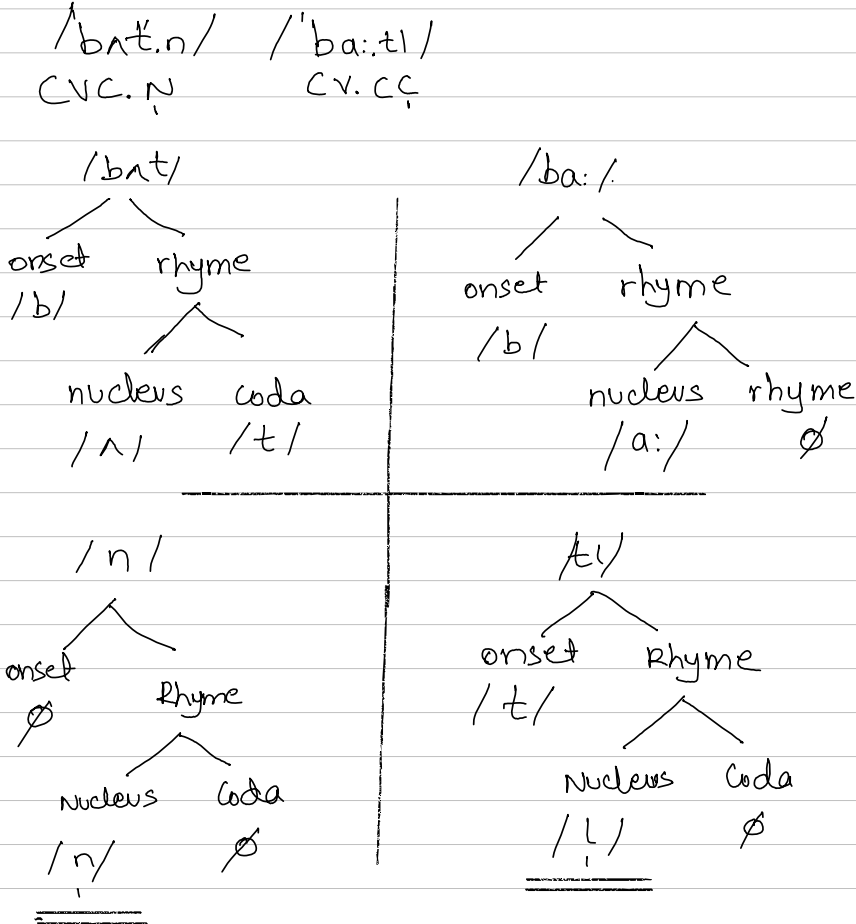 /bʌt̎.n/ /ˈba:.tl/
CVC.N̩ CV.CC̩
/bʌt/
onset rhyme
/b/
nucleus coda
/ʌ/ /t/
/ba:/.
onset rhyme
/b/
nucleus rhyme
/a:/ ∅
/n/
onset Rhyme
∅
Nucleus Coda
/n̩/ ∅
/tl/
onset Rhyme
/t/
Nucleus Coda
/l̩/ ∅